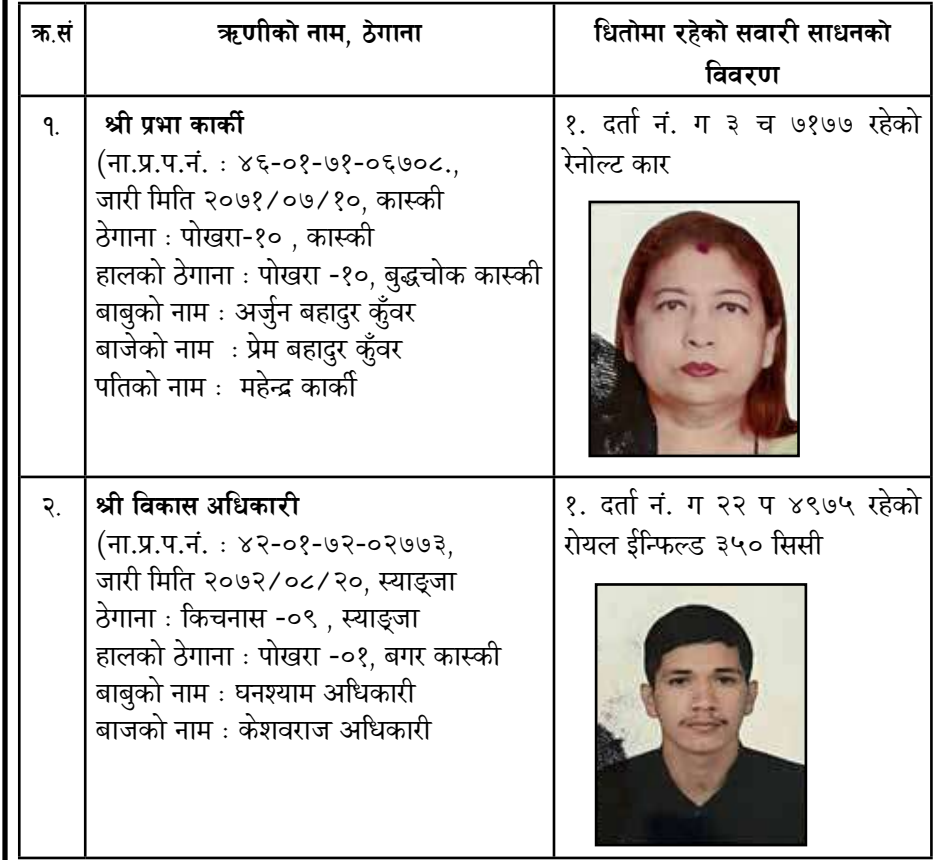 क्र.सं
ऋणीको नाम, ठेगाना
धितोमा रहेको सवारी साधनको
विवरण
१.
श्री प्रभा कार्की
(ना.प्र.प.नं. : ४६-०१-७१-०६७०८.,
जारी मिति २०७१/०७/१०, कास्की
ठेगाना : पोखरा-१० , कास्की
हालको ठेगाना : पोखरा -१०, बुद्धचोक कास्की
बाबुको नाम : अर्जुन बहादुर कुँवर
बाजेको नाम : प्रेम बहादुर कुँवर
पतिको नाम : महेन्द्र कार्की
१. दर्ता नं. ग ३ च ७१७७ रहेको
रेनोल्ट कार
२.
श्री विकास अधिकारी
(ना.प्र.प.नं. : ४२-०१-७२-०२७७३,
जारी मिति २०७२/०८/२०, स्याङ्जा
ठेगाना : किचनास -०९ , स्याङ्जा
हालको ठेगाना : पोखरा -०१, बगर कास्की
बाबुको नाम : घनश्याम अधिकारी
बाजको नाम : केशवराज अधिकारी
१. दर्ता नं. ग २२ प ४९७५ रहेको
रोयल ईन्फिल्ड ३५० सिसी